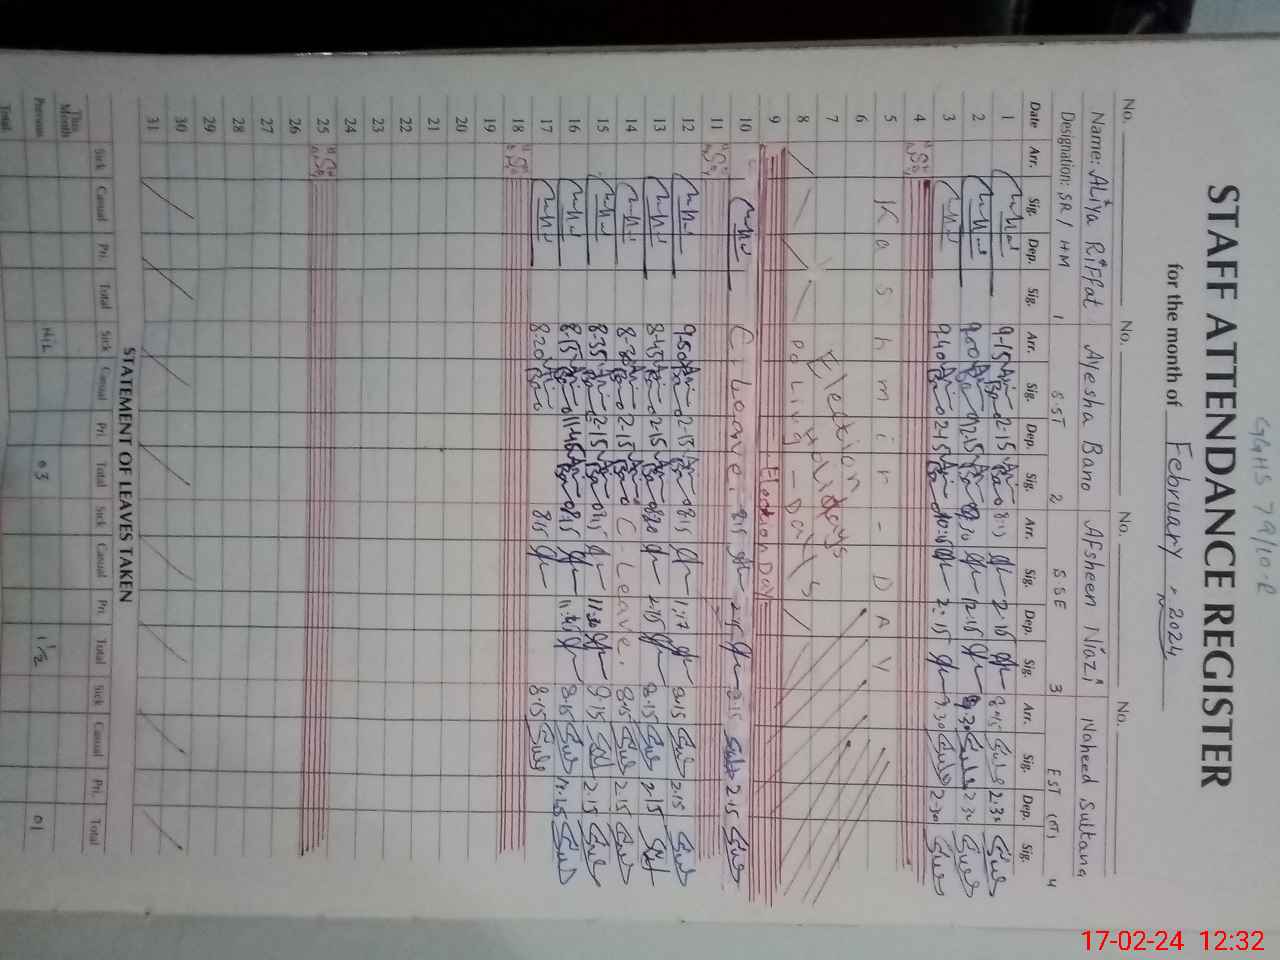 GGHS 79/10-R
STAFF ATTENDANCE REGISTER
for the month of February - 2024
No. No. No. No.
Name: Aliya Riffat Ayesha Bano Afsheen Niazi Naheed Sultana
Designation: SR / HM 1 S.ST 2 S.S.E 3 EST (OT) 4
Date Arr. Sig. Dep. Sig. Arr. Sig. Dep. Sig. Arr. Sig. Dep. Sig. Arr. Sig. Dep. Sig.
1 9-15 2-15 8:15 2-15 8:15 2.30
2 9:00 12:15 8:30 12:15 8:30 2:30
3 9-40 2-15 10:15 2:15 8:30 2:30
4
5 Kashmir - DAY
6
7 Election Holidays
8 Polling - Day's
9 Election Day
10 C. Leave. 8:15 2:15 8:15 2.15
11
12 9-50 2-15 8:15 1:17 8:15 2.15
13 8-45 2-15 8:20 2:15 8:15 2.15
14 8-30 2-15 C-Leave. 8:15 2.15
15 8-35 2-15 8:15 11:20 8:15 2.15
16 8-15 11:45 8:15 11:45 8:15
17 8:20 8:15 8:15
18
19
20
21
22
23
24
25
26
27
28
29
30
31
STATEMENT OF LEAVES TAKEN
Sick Casual Pri. Total Sick Casual Pri. Total Sick Casual Pri. Total Sick Casual Pri. Total
This Month
Previous NIL 03 1/2 01
Total
17-02-24 12:32